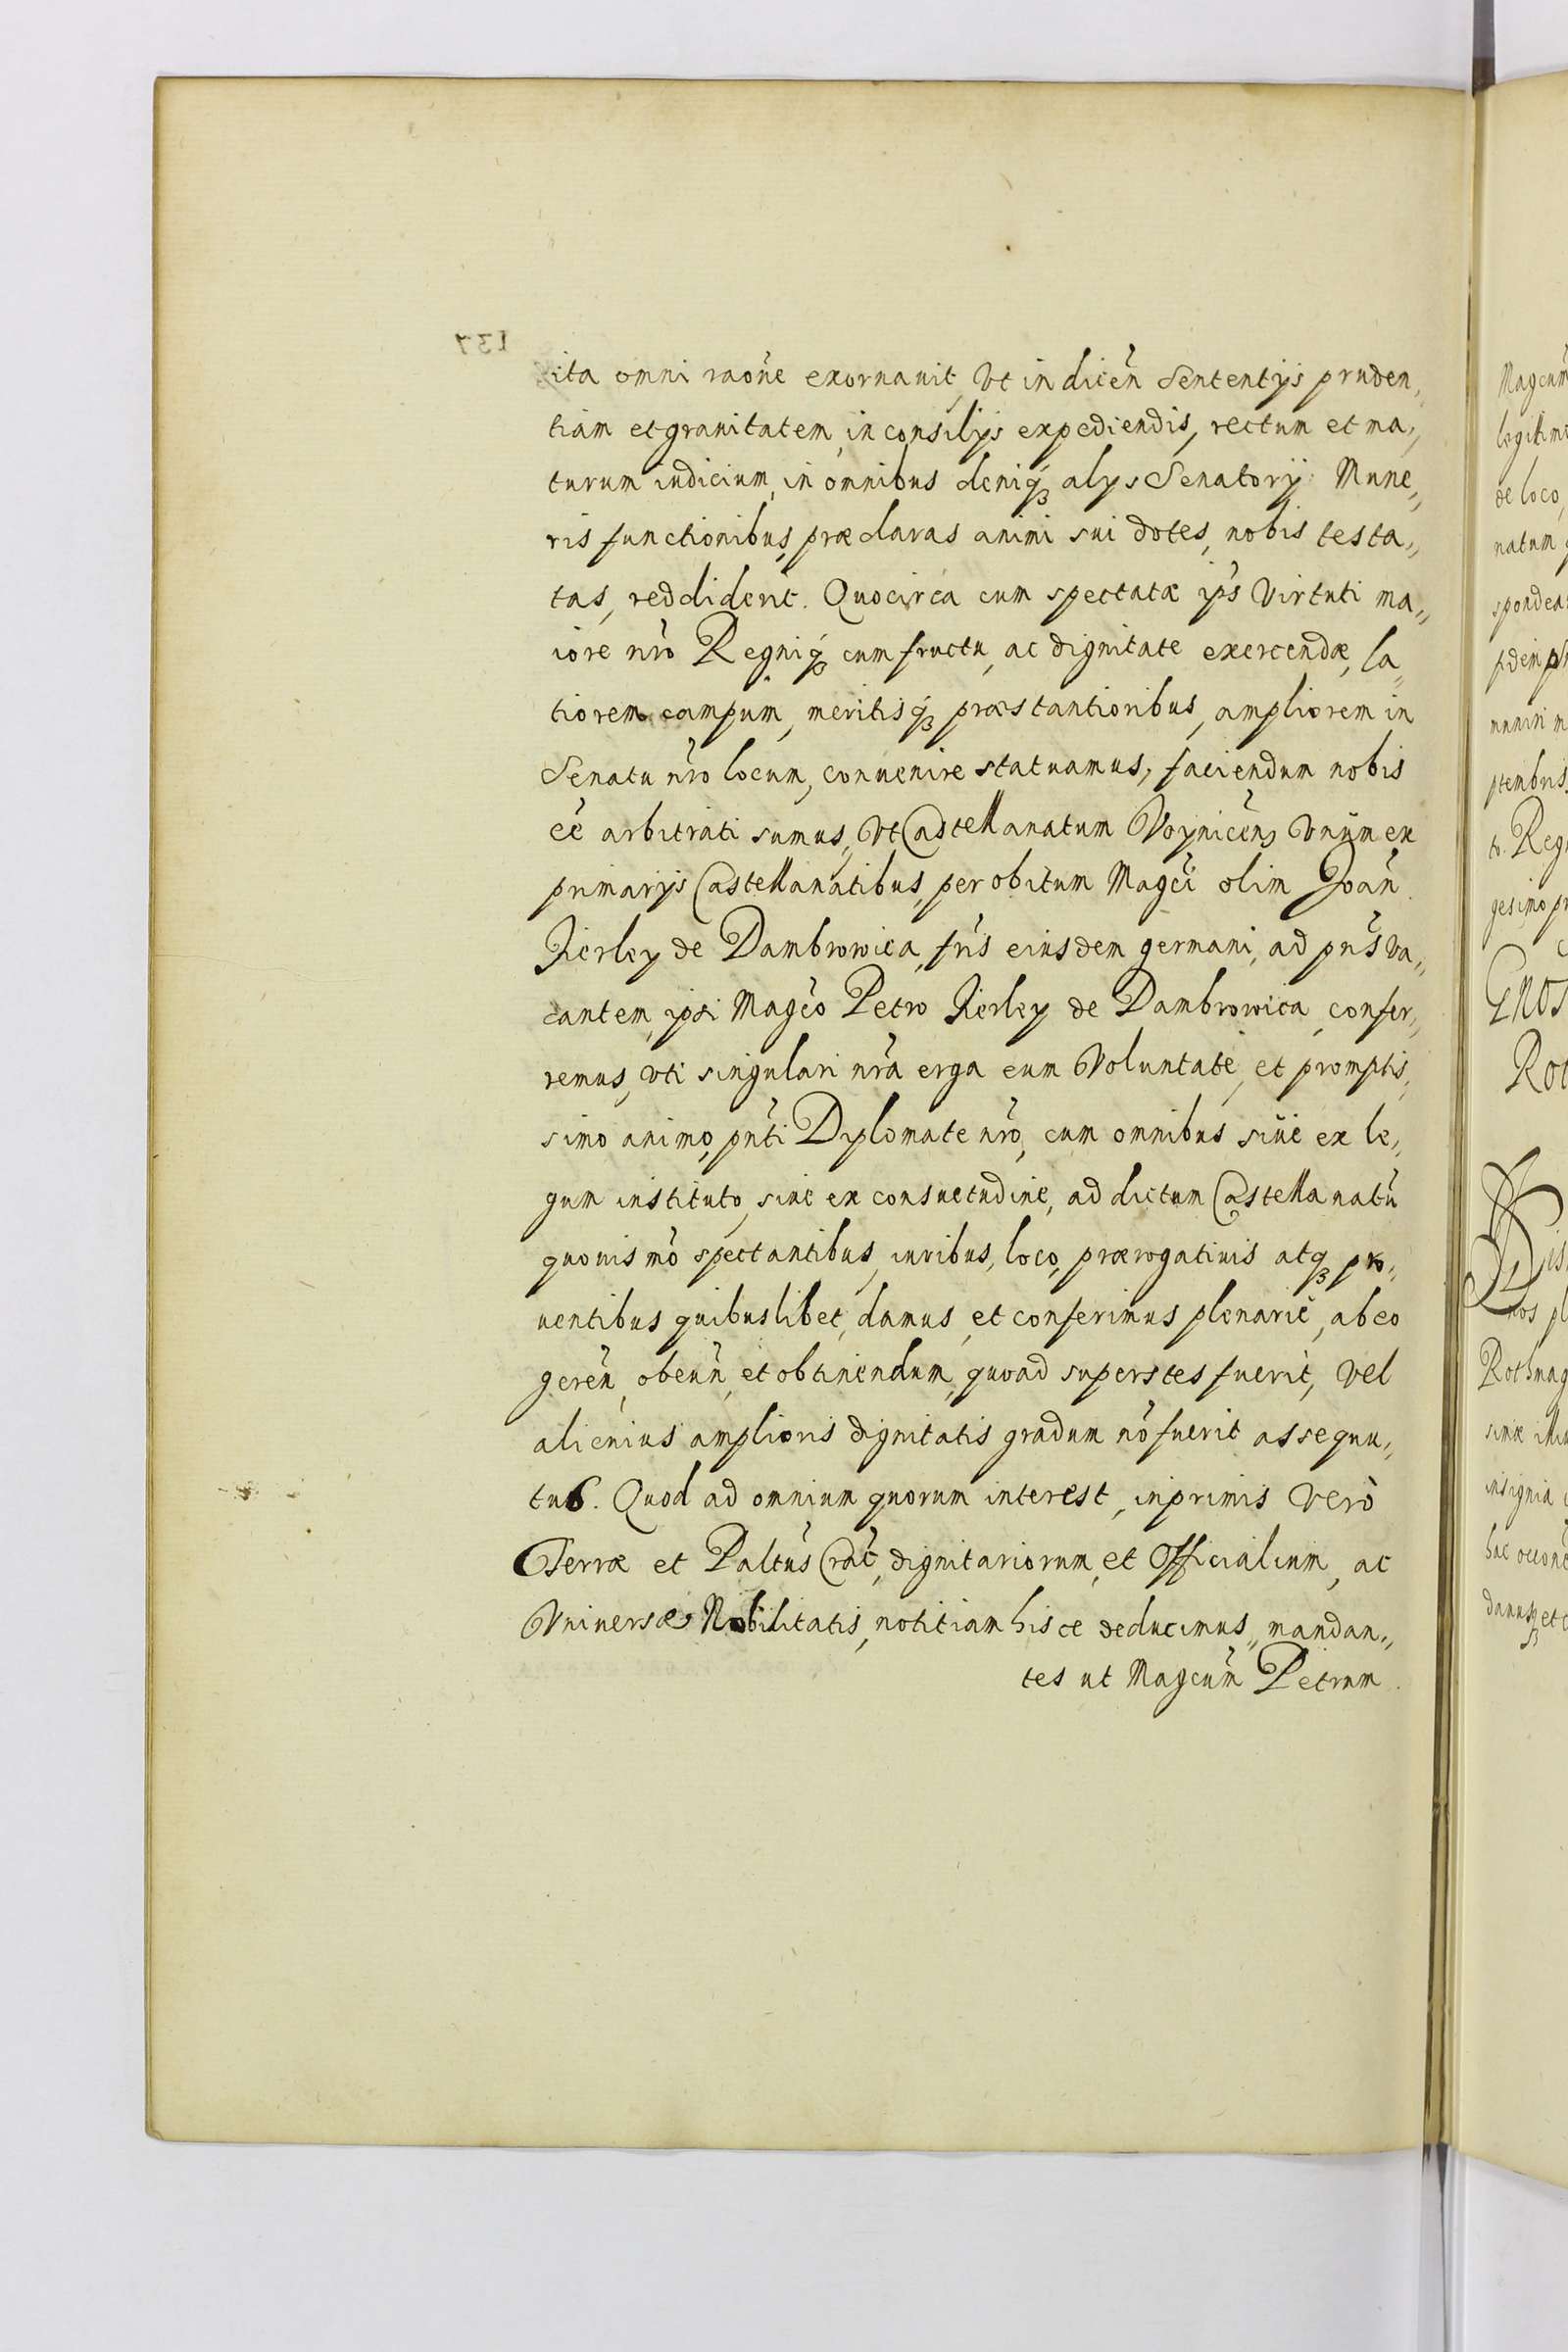 ita omni raõne exornauit, Vt in dicẽn Sententÿs pruden„
tiam et grauitatem, in consilÿs expediendis, rectum et ma„
turum iudicium, in omnibus deniq́ꝫ alÿs Senatorÿ Mune„
ris functionibus, præclaras animi sui dotes, nobis testa„
tas, reddiderit. Quocirca cum spectatæ ip̃s Virtuti ma„
iore nr̃o Regniq́ꝫ cum fructu, ac dignitate exercendæ, la„
tiorem campum, meritisq́ꝫ præstantioribus, ampliorem in
Senatu nr̃o locum, conuenire statuamus, faciendum nobis
eẽ arbitrati sumus, Vt Castellanatum Voynicẽnꝫ Vnũm ex
primarÿs Castellanatibus, per obitum Magc̃i olim Joañ
Firley de Dambrowica, fr̃is eiusdem germani, ad pñs va„
cantem, ipsi Magc̃o Petro Firley de Dambrowica, confer„
remus, vti singulari nr̃a erga eum Voluntate, et promptis„
simo animo, pñti Diplomate nr̃o, cum omnibus siue ex le„
gum instituto, siue ex consuetudine, ad dictum Castellanatũ
quouis mõ spectantibus, iuribus, loco, prærogatiuis atqꝫ pro„
uentibus quibuslibet, damus, et conferimus plenariè, ab eo
gereñ, obeuñ, et obtinendum, quoad superstes fuerit, vel
alicuius amplioris dignitatis gradum nõ fuerit assequu„
tus. Quod ad omnium quorum interest, inprimis verò
Terræ et Paltũs Crãc, dignitariorum, et Officialium, ac
Vniuersæ Nobilitatis, notitiam hisce deducimus, mandan„
tes ut Magcũm Petrum